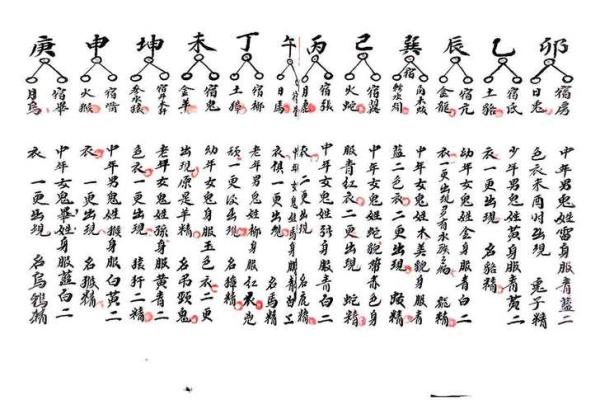 卯
宿房
日兔
乙
宿氐
土貉
辰
宿亢
金龍
巽
宿
巳
宿翼
火蛇
丙
宿張
月鹿
午
日馬
丁
宿柳
土獐
未
宿鬼
金羊
坤
宿井木犴
參水猿
申
宿觜
火猴
庚
宿畢
月烏
中年男鬼姓雷身服青藍二
色衣未酉时出現 兎子精
少年男鬼姓莫身服青黄二
衣一更出現 名貉精
幼年女鬼姓金身服青白二
衣一更出現 龍精
中年女鬼姓木美貌身服青
藍二色衣二更出現
中年女鬼姓蛇貌帶赤色身
服青红衣二更出現 蛇精
中年女鬼姓張身服青白二
衣二更出現 名鹿精
衣俱一更出現 名馬精
老年男鬼姓柳身服红衣鬼
一更出現 名獐精
幼年女鬼身服玉色衣二更
出現原是羊精 名吊頸鬼
老年女鬼姓孫身服黄青二
色衣一更出現 猿犴二精
中年男鬼姓猴身服白黄二
衣一更出現 名猴精
中年女鬼畢姓身服藍白二
衣一更出現 名烏鷄精